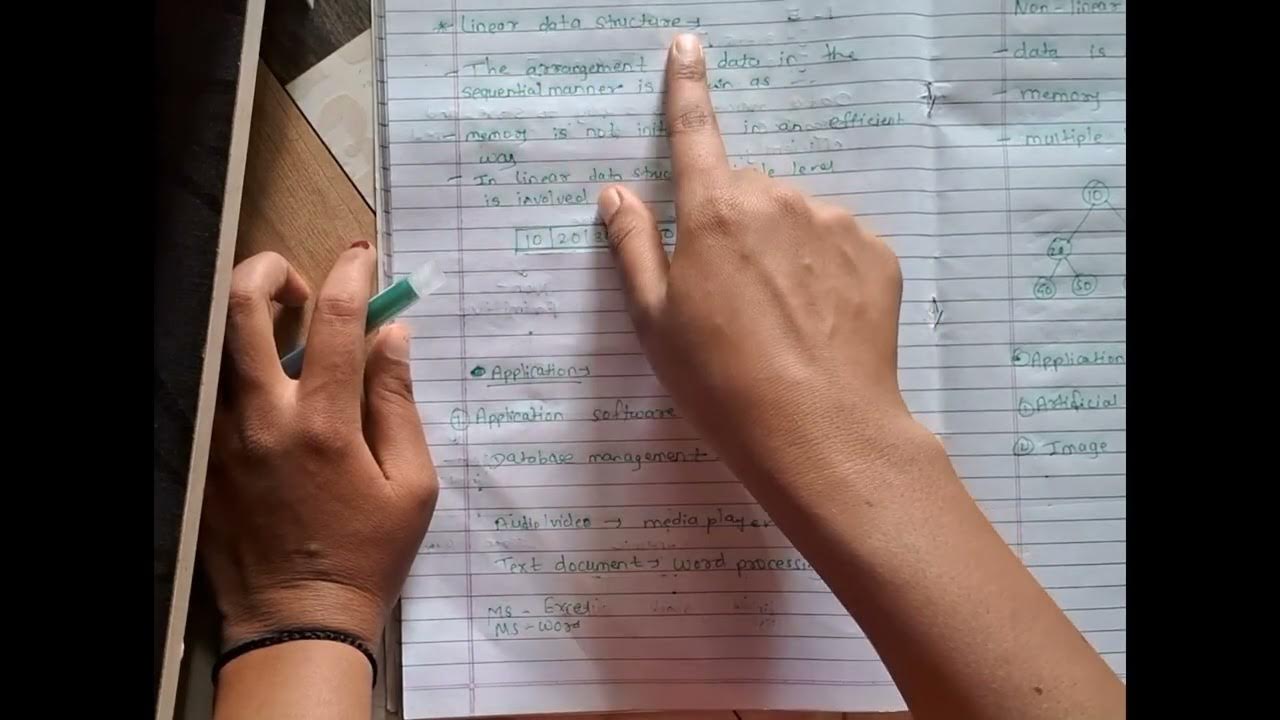 * Linear data structure →
- The arrangement data in the
sequential manner is as
- memory is not in an efficient
way
- In linear data level
is involved
10 20
• Application →
① Application software
Database management
Audio/video → media player
Text document → word
MS - Excel
MS - Word
Non-linear
- data is
- memory
- multiple
10
20
40 50
Application
① Artificial
② Image